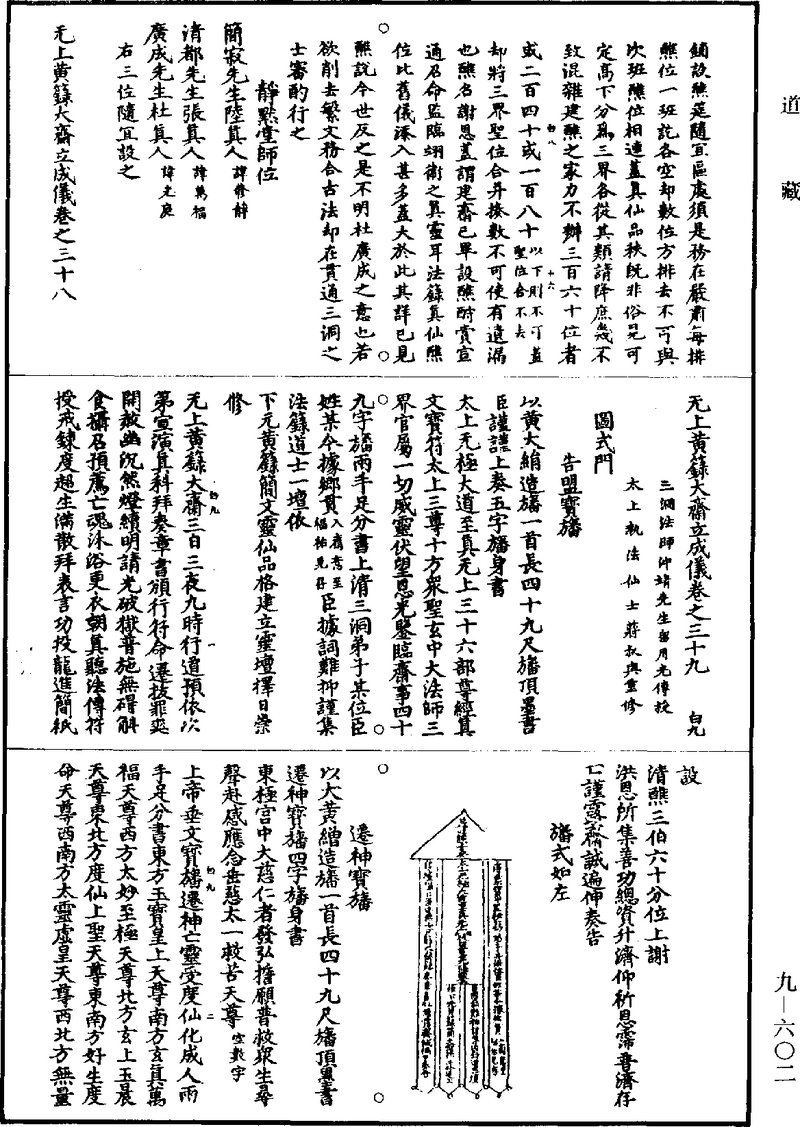 道藏
鋪設醮筵隨宜區處須是務在嚴肅每排
醮位一班訖各空却數位方排去不可與
次班醮位相連蓋真仙品秩既非俗昆可
定高下分為三界各從其類請降庶幾不
致混雜建醮之家力不辦三百六十位者
或二百四十或一百八十以下則不可蓋聖位合不去
却將三界聖位合并揍數不可使有遺漏
也醮名謝恩蓋謂建齋已畢設醮酧賞宣
通召命監臨翊衛之真靈耳法籙真仙醮
位比舊儀添入甚多蓋大於此其詳已見
醮說今世反之是不明杜廣成之意也若
欲削去繁文務合古法却在貫通三洞之
士審酌行之
靜默堂師位
簡寂先生陸真人諱修靜
清都先生張真人諱萬福
廣成先生杜真人諱光庭
右三位隨宜設之
无上黃籙大齋立成儀卷之三十八
无上黃籙大齋立成儀卷之三十九
白九
三洞法師沖靖先生留用光傳授
太上執法仙士蔣叔輿重修
圖式門
告盟寶旛
以黃大絹造旛一首長四十九尺旛頂墨書
臣謹謹上奏五字旛身書
太上无極大道至真无上三十六部尊經真
文寶符太上三尊十方眾聖玄中大法師三
界官屬一切威靈伏望恩光鑒臨齋事四十
九字旛兩手足分書上清三洞弟子某位臣
姓某今據鄉貫入齋意至福祐見存臣據詞難抑謹集
法籙道士一壇依
下元黃籙簡文靈仙品格建立靈壇擇日崇
修
无上黃籙大齋三日三夜九時行道預依次
第宣演真科拜奏章書頒行符命遷拔罪爽
開赦幽沉然燈續明請光破獄普施無碍斛
食攝召預薦亡魂沐浴更衣朝真聽法傳符
授戒鍊度超生滿散拜表言功投龍進簡祇
設
清醮三伯六十分位上謝
洪恩所集善功總資升濟仰祈恩霈普濟存
亡謹露齋誠遍伸奏告
旛式如左
遷神寶旛
以大黃繒造旛一首長四十九尺旛頂墨書
遷神寶旛四字旛身書
東極宮中大慈仁者發弘擔願普救眾生尋
聲赴感應念垂慈太一救苦天尊空數字
上帝垂文寶旛遷神亡靈受度仙化成人兩
手足分書東方玉寶皇上天尊南方玄真萬
福天尊西方太妙至極天尊北方玄上玉晨
天尊東北方度仙上聖天尊東南方好生度
命天尊西南方太靈虛皇天尊西北方無量
九—六〇二